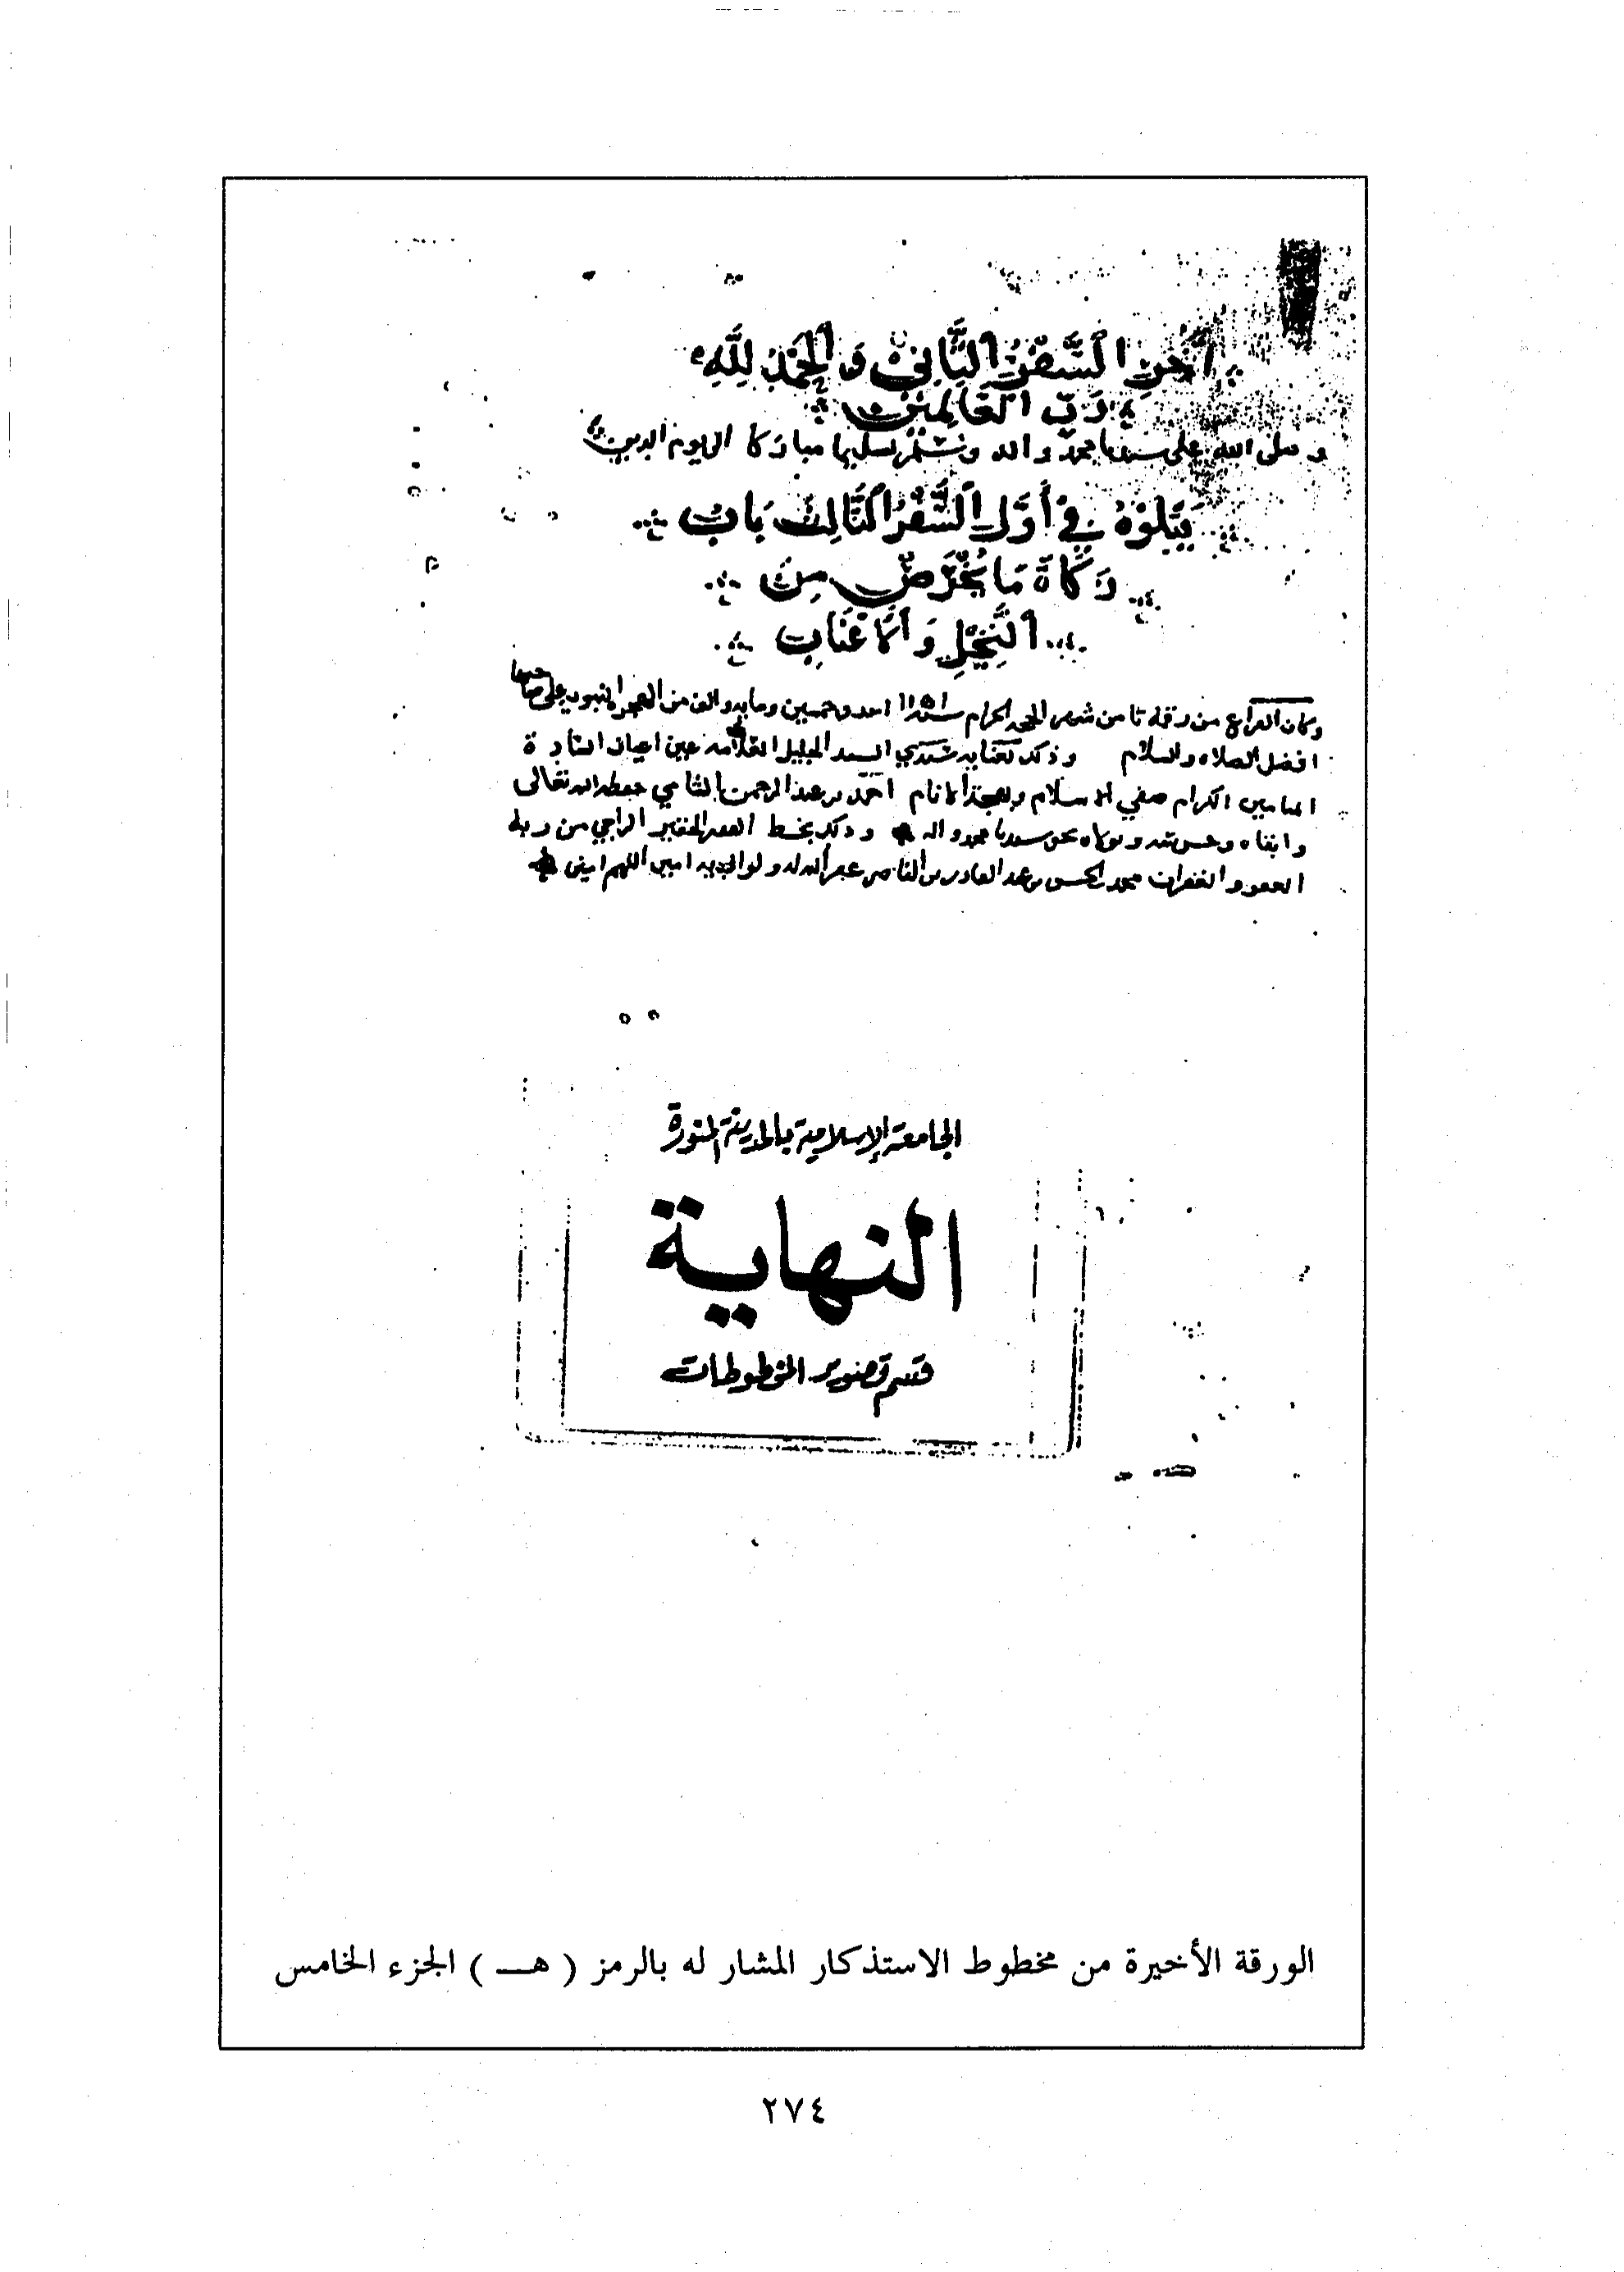 آخر السفر الثاني والحمد لله
رب العالمين
وصلى الله على سيدنا محمد واله وسلم تسليما مباركا الى يوم الدين
يتلوه في أول السفر الثالث باب
زكاة ما يخرص من
النخيل والأعناب
وكان الفراغ من رقمه ثامن شهر الحجه الحرام سنة ١١٥١ احد وخمسين ومايه والف من الهجره النبويه على صاحبها
افضل الصلاه والسلام وذلك بعنايه سيدي السيد الجليل العلامه عين اعيان السادة
الكرام صفي الاسلام وبهجة الانام احمد بن عبد الرحمن الشامي حفظه الله تعالى
وابقاه بحق سيدنا محمد واله وذلك بخط الفقير الحقير الراجي من ربه
العفو والغفران محمد بن الحسن بن عبد القادر بن الناصر غفر الله له ولوالديه امين اللهم امين
الجامعة الإسلامية بالمدينة المنورة
النهاية
قسم تصوير المخطوطات
الورقة الأخيرة من مخطوط الاستذكار المشار له بالرمز ( هـ ) الجزء الخامس
٢٧٤